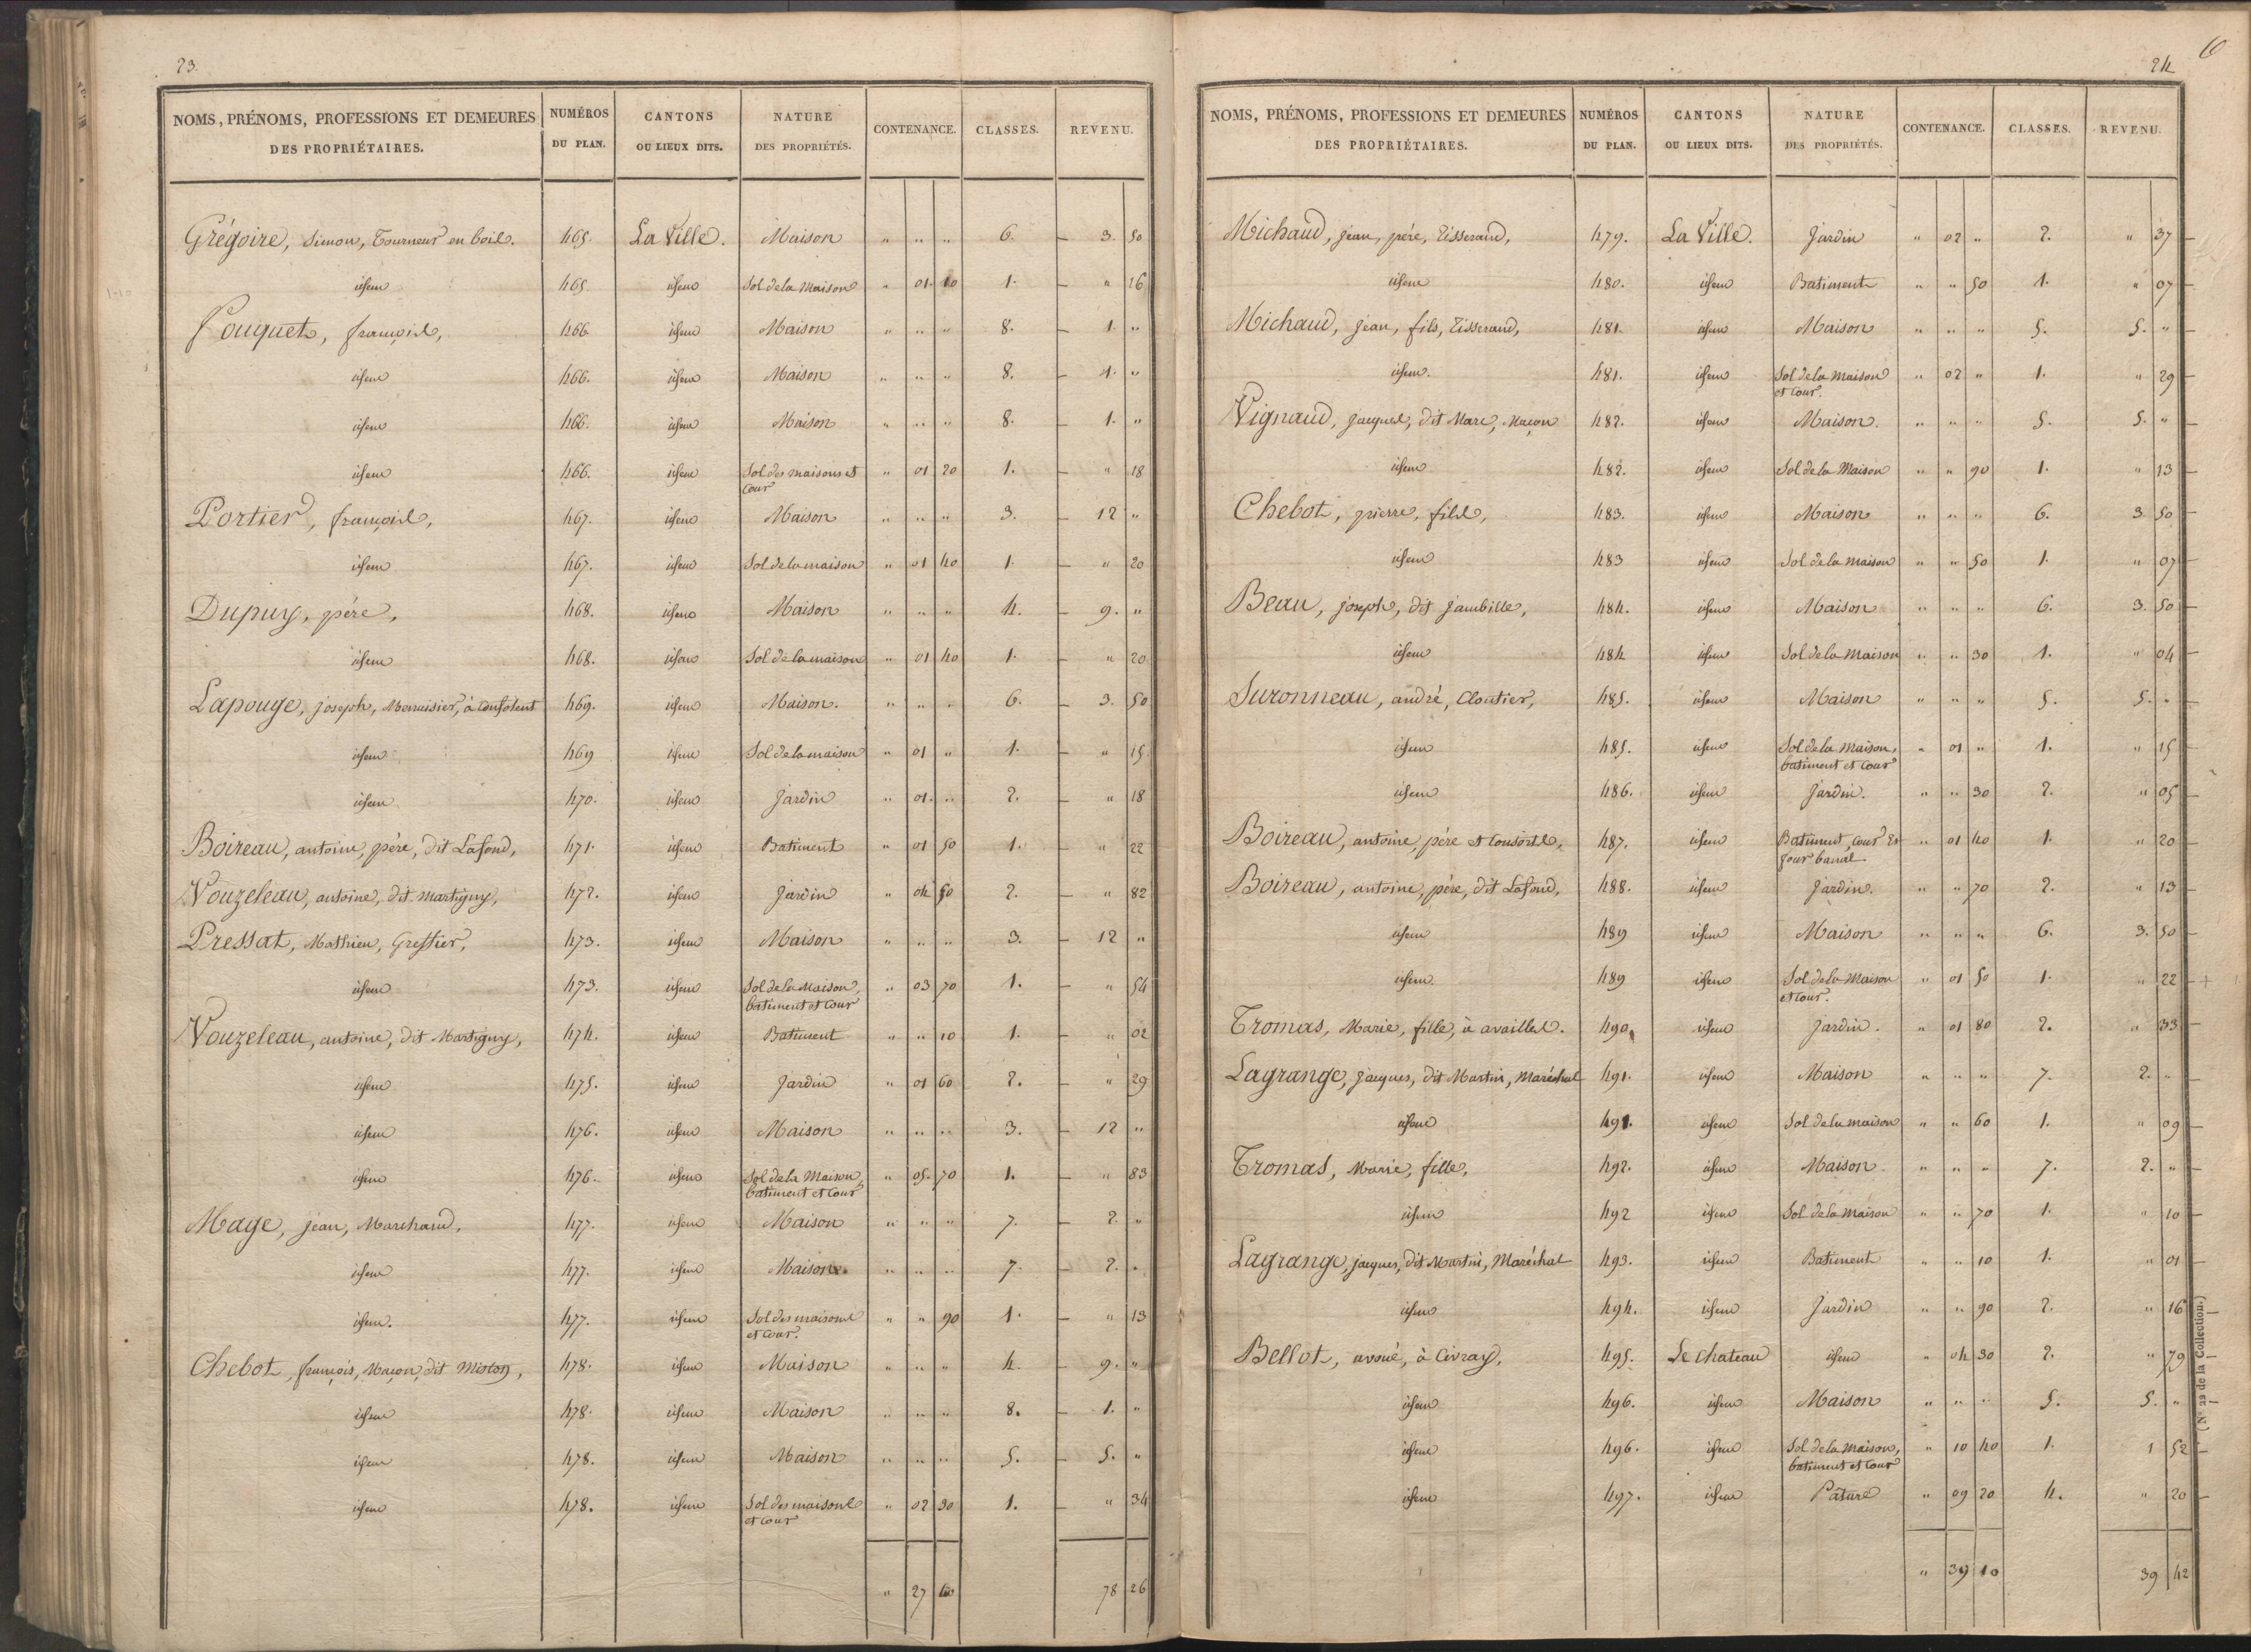 23.
NOMS, PRÉNOMS, PROFESSIONS ET DEMEURES DES PROPRIÉTAIRES. NUMÉROS DU PLAN. CANTONS OU LIEUX DITS. NATURE DES PROPRIÉTÉS. CONTENANCE. CLASSES. REVENU.
Grégoire, Simon, Tourneur en bois. 465. La Ville. Maison " " " 6. 3. 50
idem 465. idem Sol de la Maison " 01. 10 1. " 16
Fouquet, françois, 466. idem Maison " " " 8. 1. "
idem 466. idem Maison " " " 8. 1. "
idem 466. idem Maison " " " 8. 1. "
idem 466. idem Sol des maisons et " 01 20 1. " 18
cour
Portier, françois, 467. idem Maison " " " 3. 12 "
idem 467. idem Sol de la maison " 01 40 1. " 20
Dupuy, père, 468. idem Maison " " " 4. 9. "
idem 468. idem Sol de la maison " 01 40 1. " 20
Lapouge, joseph, Menuisier, à Confolent 469. idem Maison. " " " 6. 3. 50
idem 469 idem Sol de la maison " 01 " 1. " 15
idem 470. idem Jardin " 01. " 2. " 18
Boireau, antoine, père, dit Lafond, 471. idem Batiment " 01 50 1. " 22
Vouzeleau, antoine, dit martigny, 472. idem Jardin " 04 50 2. " 82
Pressat, Mathieu, Greffier, 473. idem Maison " " " 3. 12 "
idem 473. idem Sol de la Maison, " 03 70 1. " 54
batiment et cour
Vouzeleau, antoine, dit Martigny, 474. idem Batiment " " 10 1. " 02
idem 475. idem Jardin " 01 60 2. " 29
idem 476. idem Maison " " " 3. 12 "
idem 476. idem Sol de la Maison, " 05. 70 1. " 83
batiment et cour
Mage, jean, Marchand, 477. idem Maison " " " 7. 2. "
idem 477. idem Maison " " " 7. 2. "
idem. 477. idem Sol des maisons " " 90 1. " 13
et cour.
Chebot, françois, Maçon, dit Miston, 478. idem Maison " " " 4. 9. "
idem 478. idem Maison " " " 8. 1. "
idem 478. idem Maison " " " 5. 5. "
idem 478. idem Sol des maisons " 02 30 1. " 34
et cour
" 27 60 78 26
24
NOMS, PRÉNOMS, PROFESSIONS ET DEMEURES DES PROPRIÉTAIRES. NUMÉROS DU PLAN. CANTONS OU LIEUX DITS. NATURE DES PROPRIÉTÉS. CONTENANCE. CLASSES. REVENU.
Michaud, jean, père, Tisserand, 479. La Ville. Jardin " 02 " 2. " 37
idem 480. idem Batiment " " 50 1. " 07
Michaud, jean, fils, Tisserand, 481. idem Maison " " " 5. 5. "
idem. 481. idem Sol de la maison " 02 " 1. " 29
et cour.
Vignaud, jacques, dit Marc, Maçon 482. idem Maison. " " " 5. 5. "
idem 482. idem Sol de la Maison " " 90 1. " 13
Chebot, pierre, fils, 483. idem Maison " " " 6. 3 50
idem 483 idem Sol de la maison " " 50 1. " 07
Beau, joseph, dit jambille, 484. idem Maison " " " 6. 3. 50
idem 484 idem Sol de la Maison " " 30 1. " 04
Suronneau, andré, Cloutier, 485. idem Maison " " " 5. 5. "
idem 485. idem Sol de la maison, " 01 " 1. " 15
batiment et cour
idem 486. idem Jardin. " " 30 2. " 05
Boireau, antoine, père et consorts, 487. idem Batiment, cour et " 01 40 1. " 20
four banal
Boireau, antoine, père, dit Lafond, 488. idem Jardin. " " 70 2. " 13
idem 489 idem Maison " " " 6. 3. 50
idem 489 idem Sol de la Maison " 01 50 1. " 22 +
et cour.
Tromas, Marie, fille, à availles. 490. idem Jardin. " 01 80 2. " 33
Lagrange, jacques, dit Martin, Maréchal 491. idem Maison " " " 7. 2. "
idem 491. idem Sol de la maison " " 60 1. " 09
Tromas, Marie, fille, 492. idem Maison " " " 7. 2. "
idem 492 idem Sol de la maison " " 70 1. " 10
Lagrange, jacques, dit Martin, Maréchal 493. idem Batiment " " 10 1. " 01
idem 494. idem Jardin " " 90 2. " 16
Bellot, avoué, à Civray, 495. Le chateau idem " 04 30 2. " 79
idem 496. idem Maison " " " 5. 5. "
idem 496. idem Sol de la maison, " 10 40 1. 1 52
batiment et cour
idem 497. idem Pature " 09 20 4. " 20
" 39 10 39 42
(N° 22 de la Collection.)